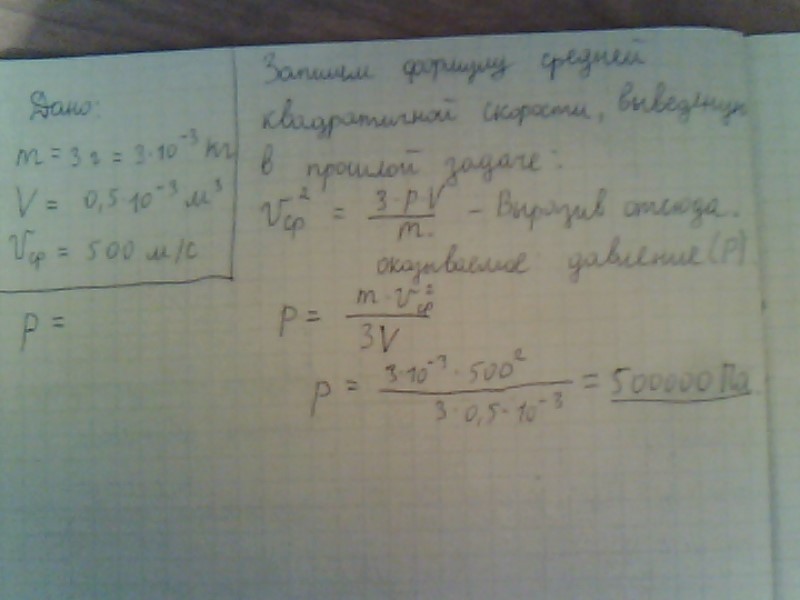 Дано:
m = 3 г = 3·10⁻³ кг
V = 0,5·10⁻³ м³
Vср = 500 м/с
p =
Запишем формулу средней
квадратичной скорости, выведеную
в прошлой задаче:
Vср² = 3·p·V / m. - Выразив отсюда.
оказываемое давление (P)
P = m·Vср² / 3V
p = 3·10⁻³·500² / 3·0,5·10⁻³ = 500000 Па